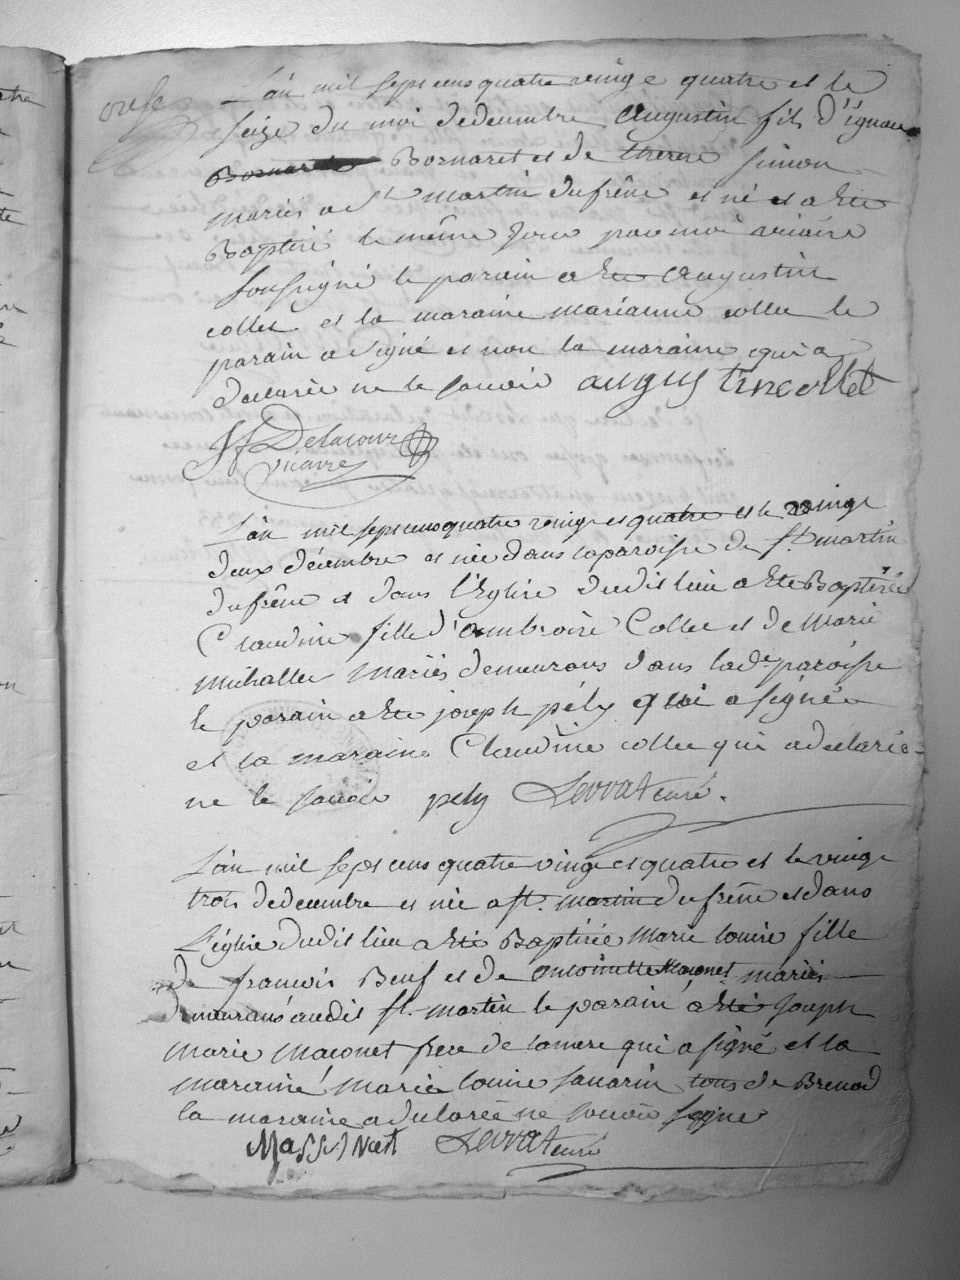 onze
L'an mil sept cens quatre vingt quatre et le
seize du moi de decembre Augustin fils d'ignace
Bornaret et de therese simon
mariés a St martin du frêne et né et a Eté
Baptisé le même jour par moi vicaire
soussigné le parain a Eté Augustin
collet et la maraine marianne collet le
parain a signé et non la maraine qui a
declarée ne le savoir augustin collet
Delacour
vicaire
L'an mil sept cens quatre vingt et quatre et le vingt
deux décembre est née dans la paroisse de St martin
du frêne et dans l'Eglise dudit lieu a Eté Baptisée
Claudine fille d'ambroise Collet et de Marie
michallet mariés demeurans dans lade paroisse
le parain a Eté joseph pély qui a signé
et la maraine Claudine collet qui a declarée
ne le savoir pely Levrat curé.
L'an mil sept cens quatre vingt et quatre et le vingt
trois de decembre est née a st. martin du frêne et dans
L'église dudit lieu a Eté Baptisée Marie Louise fille
de francois Beuf et de antoinette Maconet mariés
demeurans audit st. martin le parain a Eté Joseph
Marie Maconet frere de la mere qui a signé et la
maraine Marie Louise savarin tous de Brenod
la maraine a declarée ne savoir signer
Levrat curé